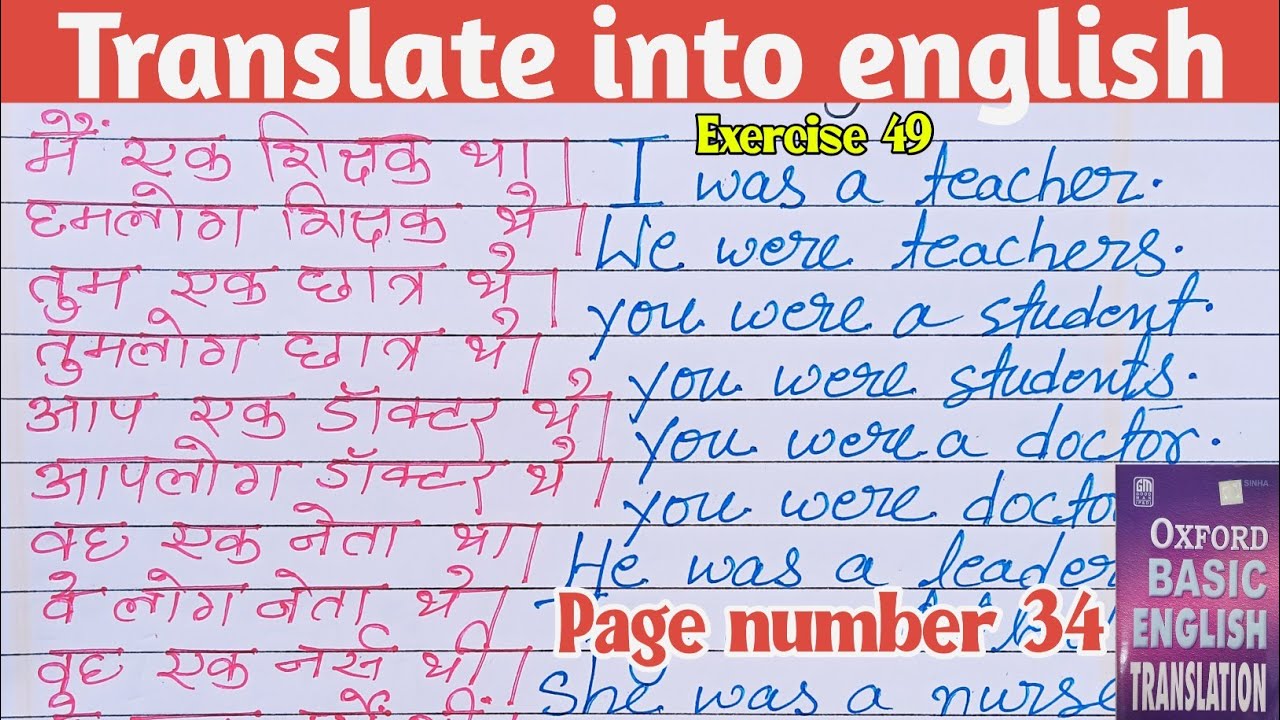 Translate into english
Exercise 49
मैं एक शिक्षक था। I was a teacher.
हमलोग शिक्षक थे। We were teachers.
तुम एक छात्र थे। you were a student.
तुमलोग छात्र थे। you were students.
आप एक डॉक्टर थे। you were a doctor.
आपलोग डॉक्टर थे। you were
वह एक नेता था। He was a leader
वे लोग नेता थे।
Page number 34
वह एक नर्स थी। She was a nurse
GM
SINHA
OXFORD
BASIC
ENGLISH
TRANSLATION